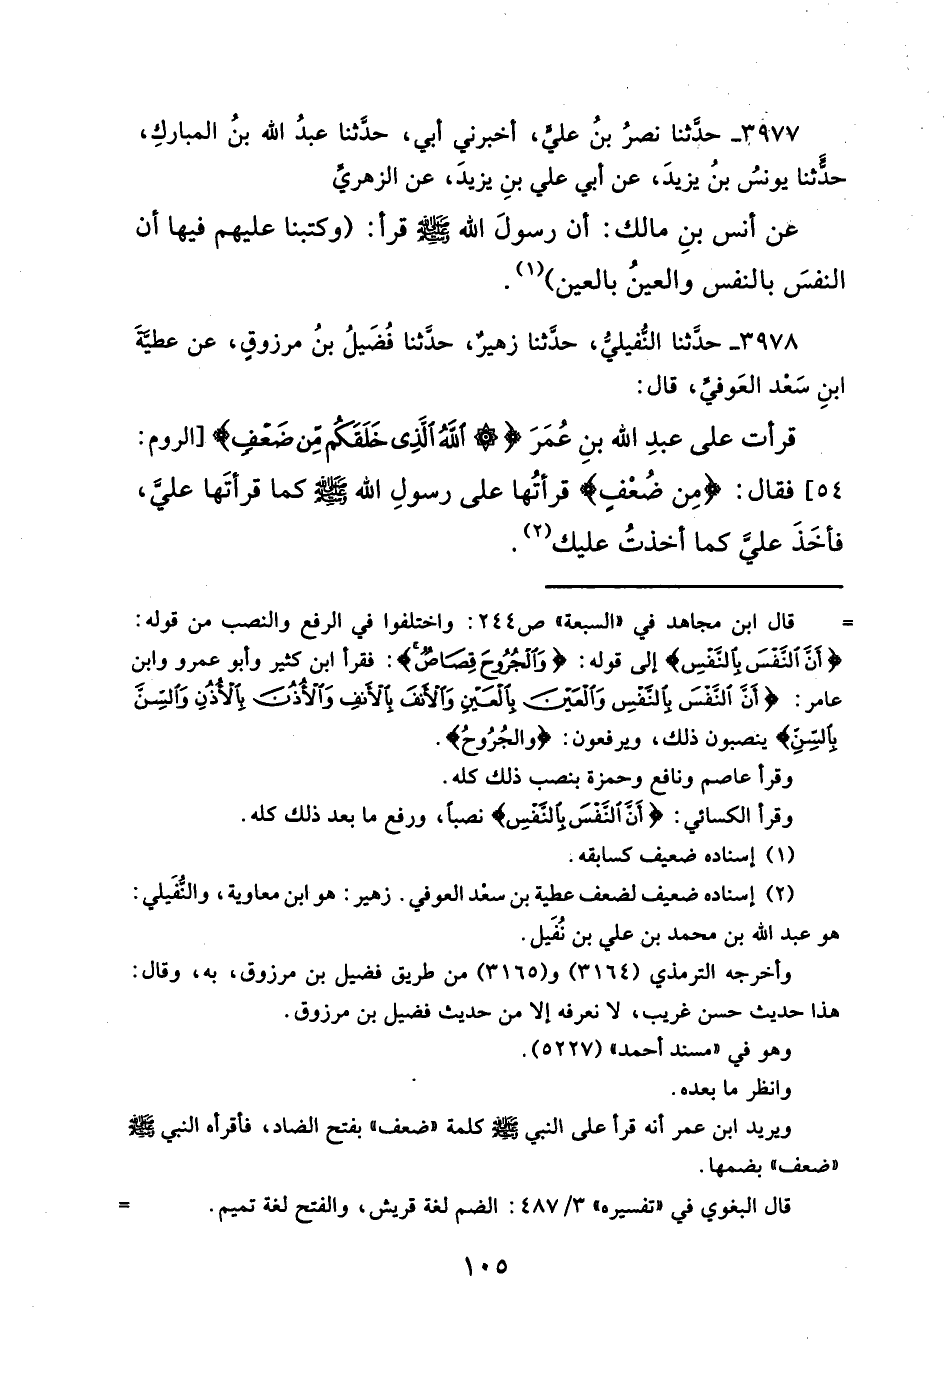 ٣٩٧٧ـ حدَّثنا نصرُ بنُ عليٍّ، أخبرني أبي، حدَّثنا عبدُ الله بنُ المباركِ،
حدَّثنا يونسُ بنُ يزيدَ، عن أبي علي بنِ يزيدَ، عن الزهريِّ
عن أنس بنِ مالك: أن رسولَ الله ﷺ قرأ: (وكتبنا عليهم فيها أن
النفسَ بالنفس والعينُ بالعين)(١).
٣٩٧٨ـ حدَّثنا النُّفيليُّ، حدَّثنا زهيرٌ، حدَّثنا فُضَيلُ بنُ مرزوقٍ، عن عطيَّةَ
ابنِ سَعْد العَوفيِّ، قال:
قرأت على عبدِ الله بنِ عُمَرَ ﴿۞ ٱللَّهُ ٱلَّذِى خَلَقَكُم مِّن ضَعْفٍ﴾ [الروم:
٥٤] فقال: ﴿مِن ضُعْفٍ﴾ قرأتُها على رسولِ الله ﷺ كما قرأتَها عليَّ،
فأخَذَ عليَّ كما أخذتُ عليك(٢).
= قال ابن مجاهد في «السبعة» ص٢٤٤: واختلفوا في الرفع والنصب من قوله:
﴿أَنَّ ٱلنَّفْسَ بِٱلنَّفْسِ﴾ إلى قوله: ﴿وَٱلْجُرُوحَ قِصَاصٌ﴾: فقرأ ابن كثير وأبو عمرو وابن
عامر: ﴿أَنَّ ٱلنَّفْسَ بِٱلنَّفْسِ وَٱلْعَيْنَ بِٱلْعَيْنِ وَٱلْأَنفَ بِٱلْأَنفِ وَٱلْأُذُنَ بِٱلْأُذُنِ وَٱلسِّنَّ
بِٱلسِّنِّ﴾ ينصبون ذلك، ويرفعون: ﴿والجُرُوحُ﴾.
وقرأ عاصم ونافع وحمزة بنصب ذلك كله.
وقرأ الكسائي: ﴿أَنَّ ٱلنَّفْسَ بِٱلنَّفْسِ﴾ نصباً، ورفع ما بعد ذلك كله.
(١) إسناده ضعيف كسابقه.
(٢) إسناده ضعيف لضعف عطية بن سعْد العوفي. زهير: هو ابن معاوية، والنُّفَيلي:
هو عبد الله بن محمد بن علي بن نُفَيل.
وأخرجه الترمذي (٣١٦٤) و(٣١٦٥) من طريق فضيل بن مرزوق، به، وقال:
هذا حديث حسن غريب، لا نعرفه إلا من حديث فضيل بن مرزوق.
وهو في «مسند أحمد» (٥٢٢٧).
وانظر ما بعده.
ويريد ابن عمر أنه قرأ على النبي ﷺ كلمة «ضعف» بفتح الضاد، فأقرأه النبي ﷺ
«ضعف» بضمها.
قال البغوي في «تفسيره» ٣/ ٤٨٧: الضم لغة قريش، والفتح لغة تميم. =
١٠٥